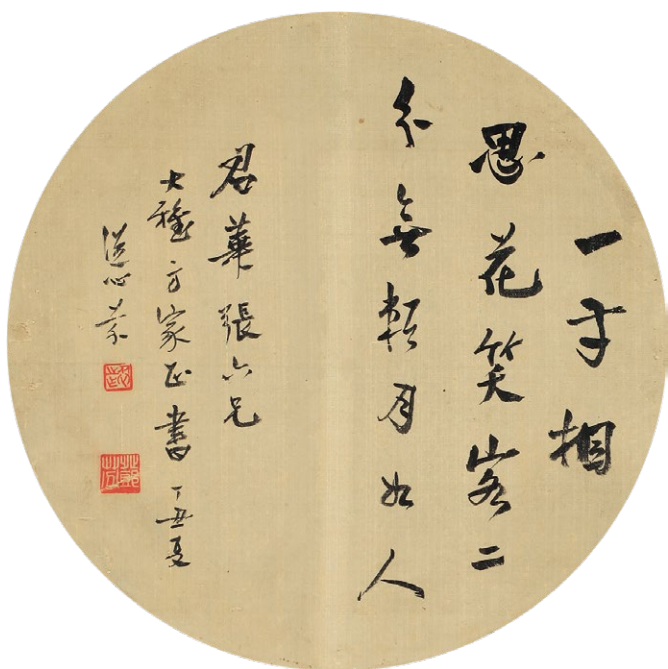 一寸相
思花笑客二
分無賴月如人
君華張六兄
大雅方家正書丁丑夏